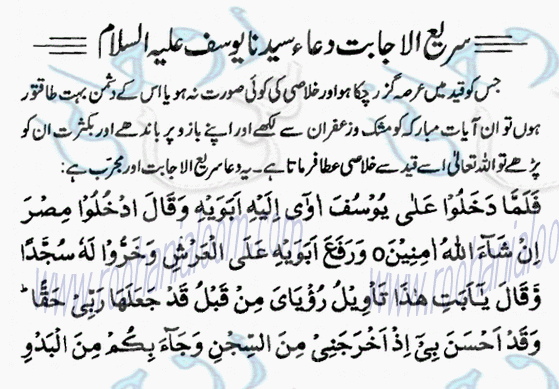 سریع الاجابت دعاء سیدنا یوسف علیہ السلام
جس کو قید میں عرصہ گزر چکا ہو اور خلاصی کی کوئی صورت نہ ہو یا اس کے دشمن بہت طاقتور
ہوں تو ان آیات مبارکہ کو مشک و زعفران سے لکھے اور اپنے بازو پر باندھے اور بکثرت ان کو
پڑھے تو اللہ تعالیٰ اسے قید سے خلاصی عطا فرماتا ہے۔ یہ دعا سریع الاجابت اور مجرب ہے:
فَلَمَّا دَخَلُوْا عَلٰی یُوْسُفَ اٰوٰۤی اِلَیْهِ اَبَوَیْهِ وَقَالَ ادْخُلُوْا مِصْرَ
اِنْ شَآءَ اللّٰهُ اٰمِنِیْنَ۝ وَرَفَعَ اَبَوَیْهِ عَلَی الْعَرْشِ وَخَرُّوْا لَهٗ سُجَّدًا
وَّقَالَ یٰۤاَبَتِ هٰذَا تَاْوِیْلُ رُؤْیَایَ مِنْ قَبْلُ قَدْ جَعَلَهَا رَبِّیْ حَقًّا ؕ
وَقَدْ اَحْسَنَ بِیْۤ اِذْ اَخْرَجَنِیْ مِنَ السِّجْنِ وَجَآءَ بِكُمْ مِنَ الْبَدْوِ